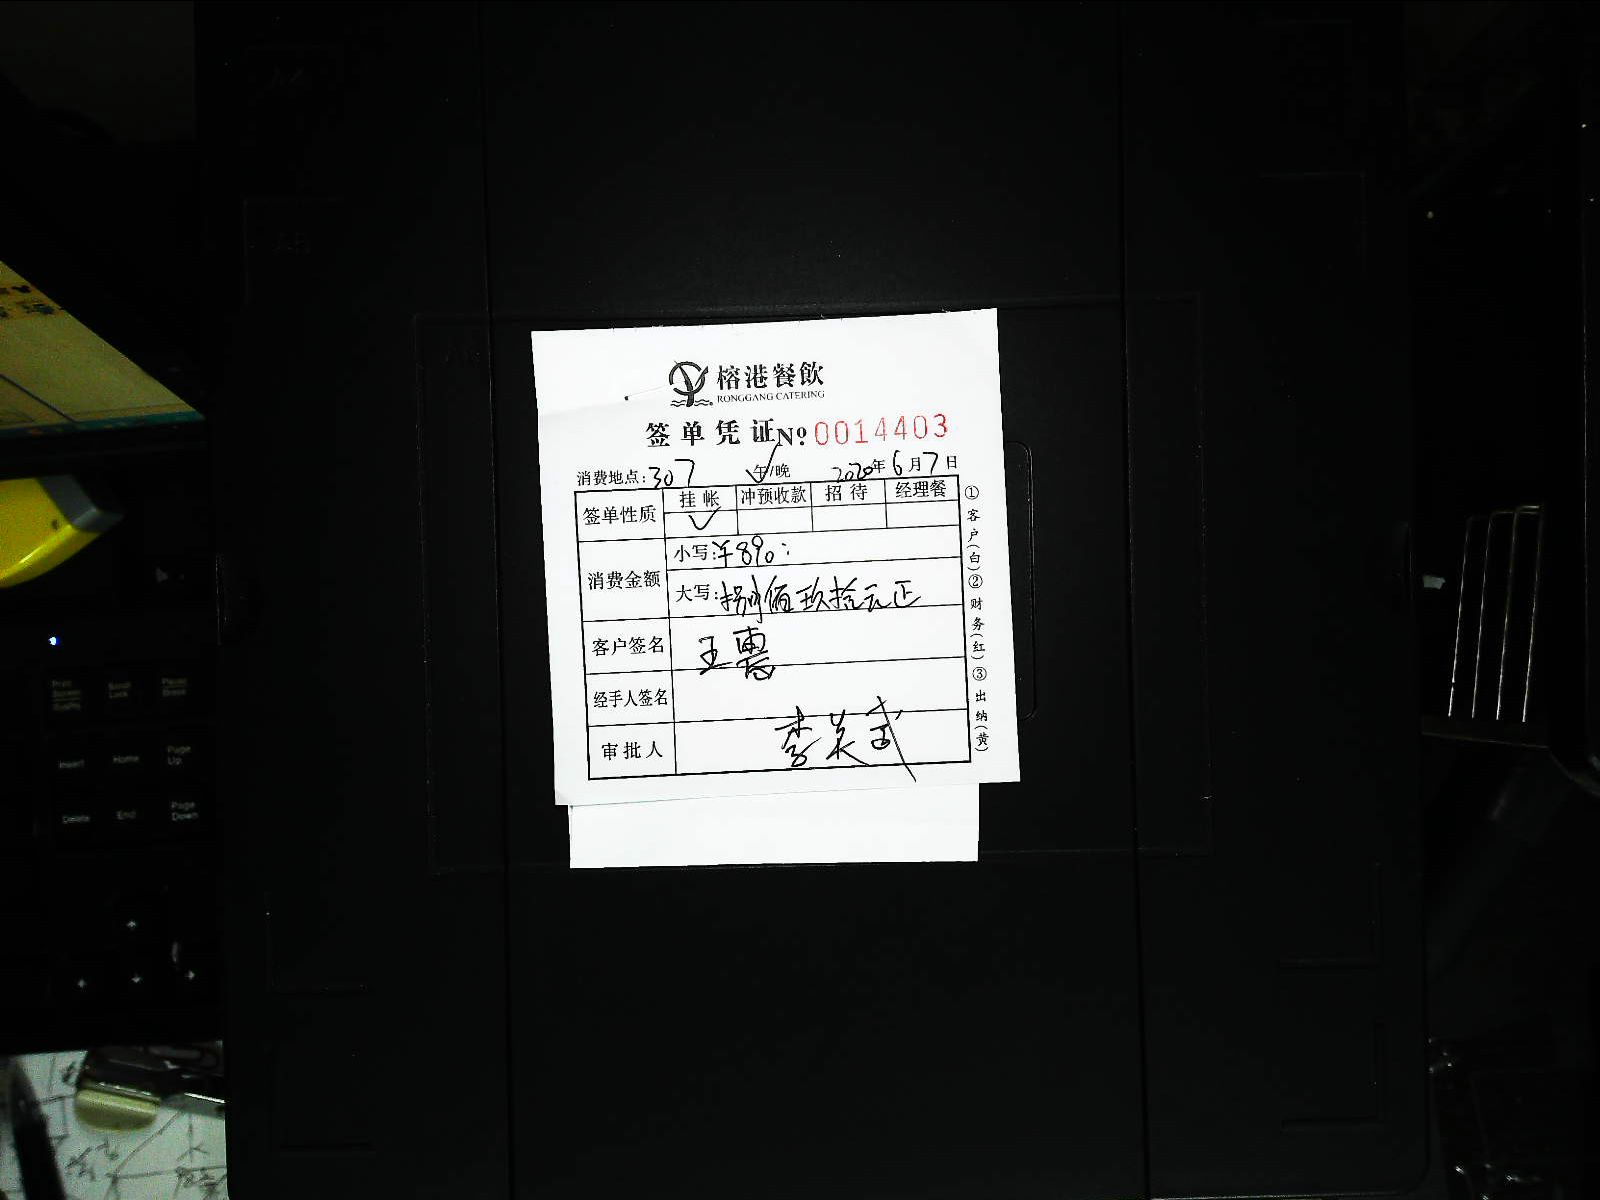 榕港餐飲
RONGGANG CATERING
签单凭证 Nº 0014403
消费地点:307 午/晚 2020年6月7日
签单性质 挂帐 冲预收款 招待 经理餐
✓
消费金额 小写:¥890:
大写:捌佰玖拾元正
客户签名 王惠
经手人签名
审批人 李美武
①客户(白)②财务(红)③出纳(黄)
Print Screen SysRq Scroll Lock Pause Break
Insert Home Page Up
Delete End Page Down